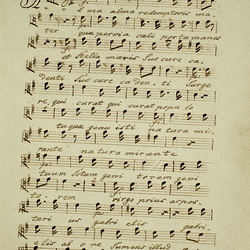 al ma redemptoris ma
ter que pervia celi porta manes
et stella maris Succurre ca
denti Succurre ca den ti Surge
re qui curat qui curat popu lo
tu que genu isti na tura mi
rante na tura mirante
tuum Sctum geni torem geni
to rem virgo prius ac pos
teri us gabri elis gabri
elis ab o re Sumens illud